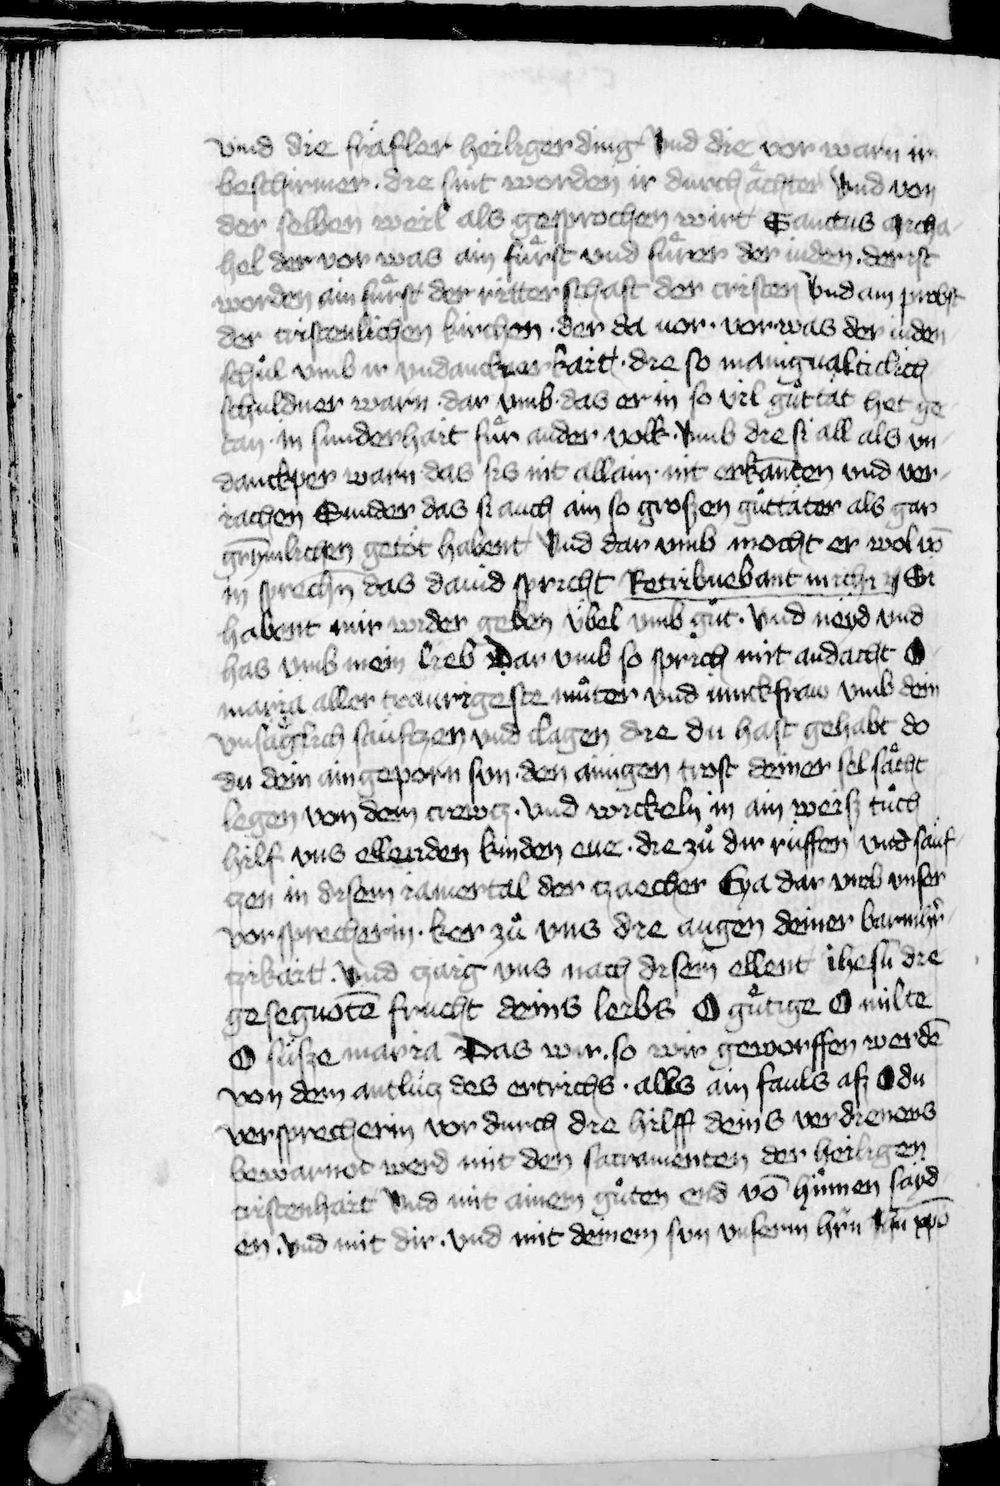 vnd die fräfler heiliger ding Vnd die vor warn ir
beschirmer · die sint worden ir durchåchter Vnd von
der selben weil als gesprochen wirt Sanctus Micha-
hel der vor was ain fürst vnd fürer der iuden · der ist
worden ain fürst der ritterschaft der cristen Vnd ain probst
der cristenlichen kirchen · der da uor · vor was der iuden
schůl vmb ir vndanckperkait · die so manigualticlich
schuldner warn · dar vmb · das er in so vil gůttät het ge
tan · in sunderhait für ander volk · Vmb die si all als vn-
danckper warn das sis nit allain · nit erkanten vnd ver-
iachen Sunder das si auch ain so groszen gůttäter als gar
grimlichen getöt habent Vnd dar vmb mocht er wol vō
in sprechn das dauid spricht Retribuebant michi Si
habent mir wider geben übel vmb gůt · Vnd neyd vnd
has vmb mein lieb Dar vmb so sprich mit andacht O
maria aller traurigeste můter vnd iunckfraw vmb dein
vnsåglich säuftzen vnd clagen die du hast gehabt do
du dein aingeporn sun · den ainigen trost deiner sel såcht
legen von dem crewtz · Vnd wickeln in ain weisz tůch
hilf vns ellenden kinden eue · die zů dir rüffen vnd säuf-
tzen in disem iamertal der tzaecher Eya dar vmb vnser
vorsprecherin · ker zů vns die augen deiner barmhr-
tzikait · Vnd tzaig vns nach disem ellent ihesū die
gesegnotē frucht deins leibs O gůtige O milte
O süsze maria Das wir · so wir geworffen werdē
von dem antlütz des ertrichs · alls ain fauls asz O du
versprecherin vor durch die hilff deins verdienens
bewarnot werd mit den sacramenten der heiligen
cristenhait Vnd mit ainem gůten end vō hinnen säyd
en · Vnd mit dir · vnd mit deinem sun vnserm hrn ihū xpō